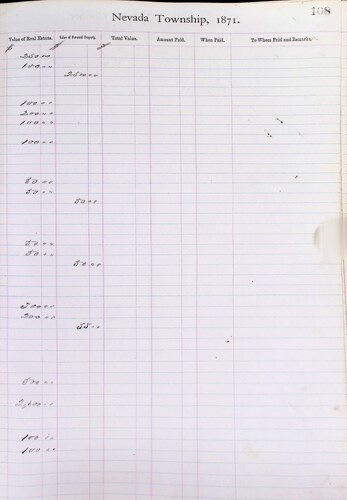 108
Nevada Township, 1871.
Value of Real Estate. Value of Personal Property. Total Value. Amount Paid. When Paid. To Whom Paid and Remarks.
250 00
100 00
250 00
100 00
200 00
100 00
100 00
50 00
50 00
50 00
50 00
50 00
300 00
200 00
55 00
100 00
100 00